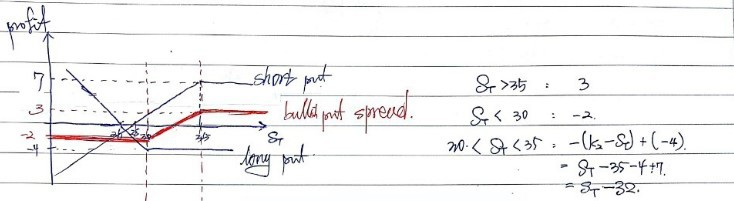 profit
7
3
-2
-4
short put
bull put spread.
long put.
30
35
S_T
S_T > 35 : 3
S_T < 30 : -2.
30 < S_T < 35 : -(K₂-S_T)+(-4)
= S_T-35-4+7.
= S_T-32.